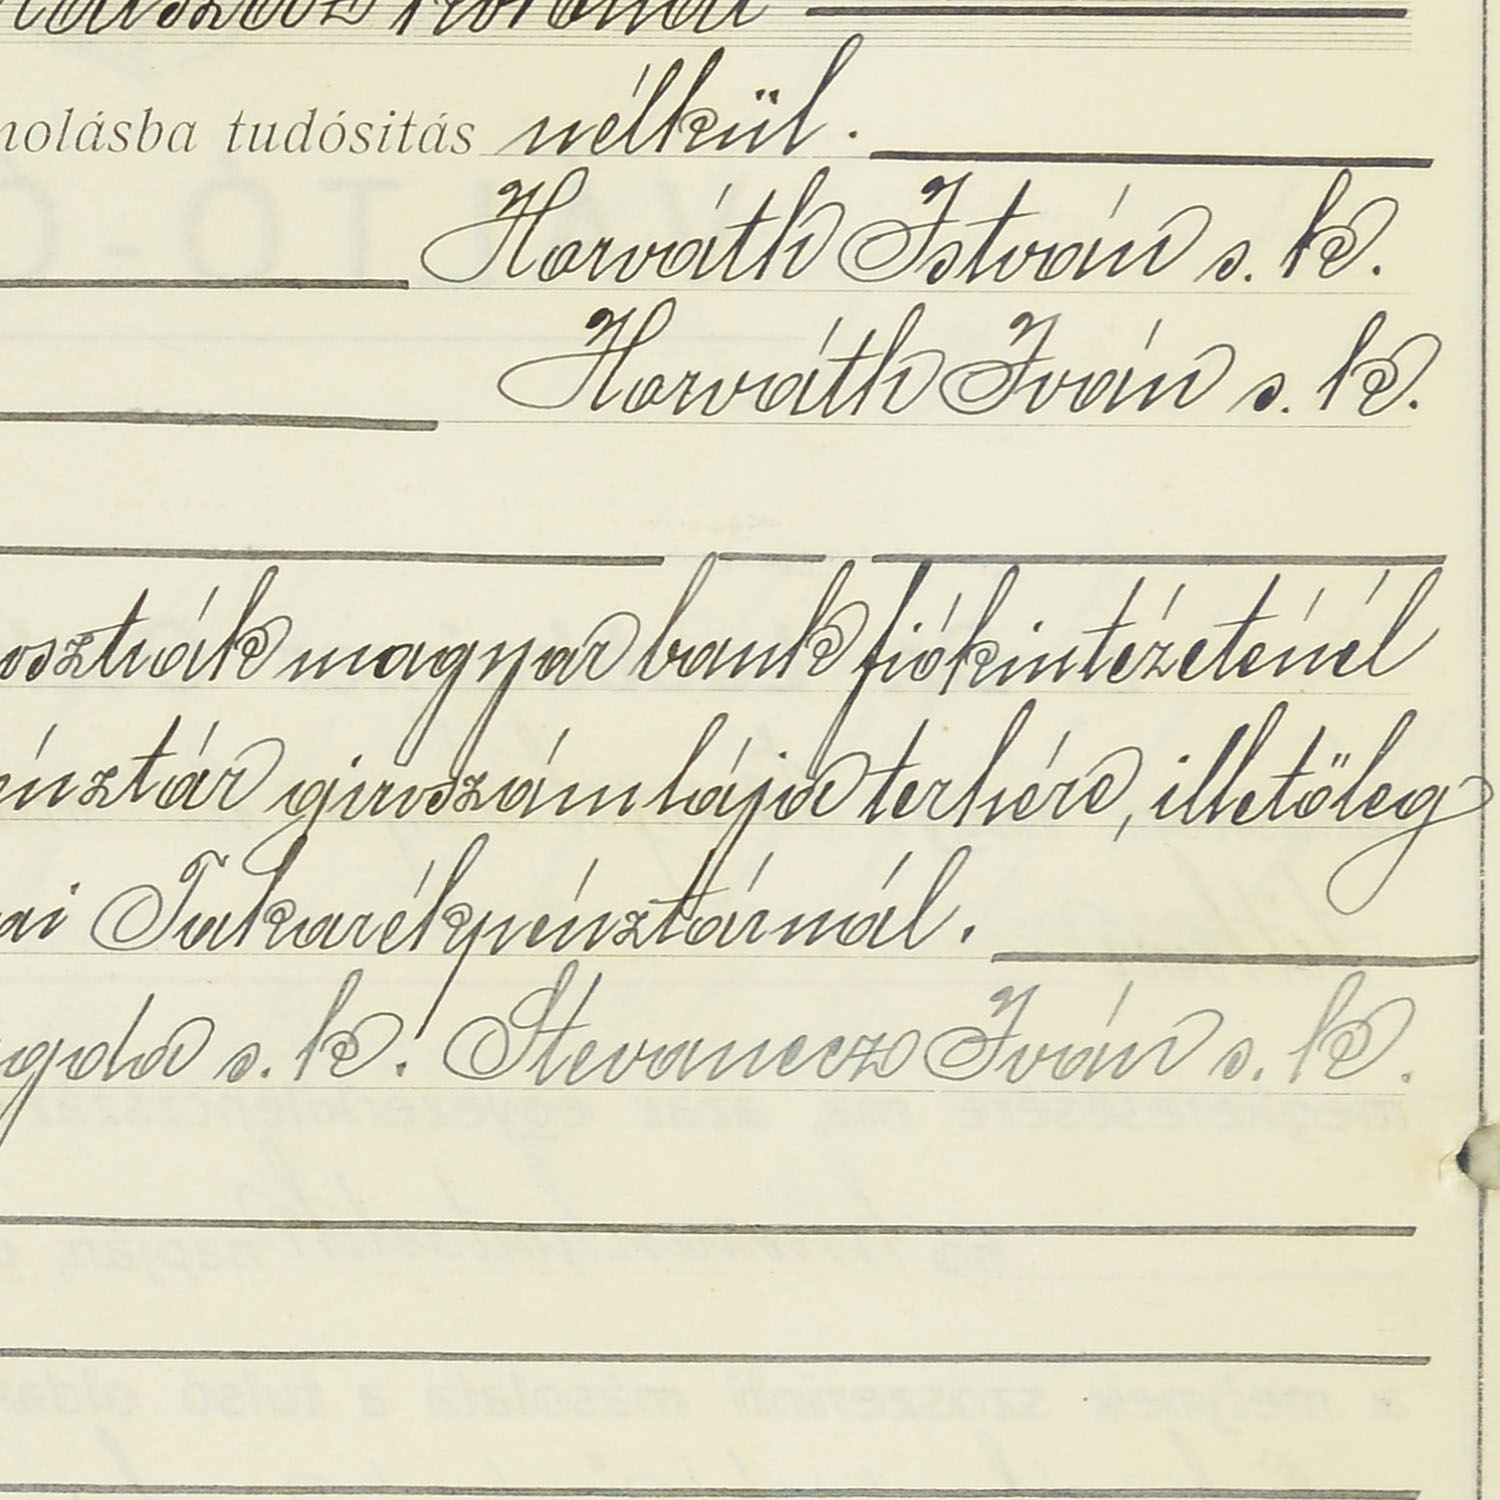 korona
molásba tudósitás nélkül.
Horváth István s. k.
Horváth Iván s. k.
osztrák magyar bank fiókintézeténél
énztár giroszámlája terhére, illetőleg
ai Takarékpénztárnál.
gda s. k. Stevanecz Iván s. k.